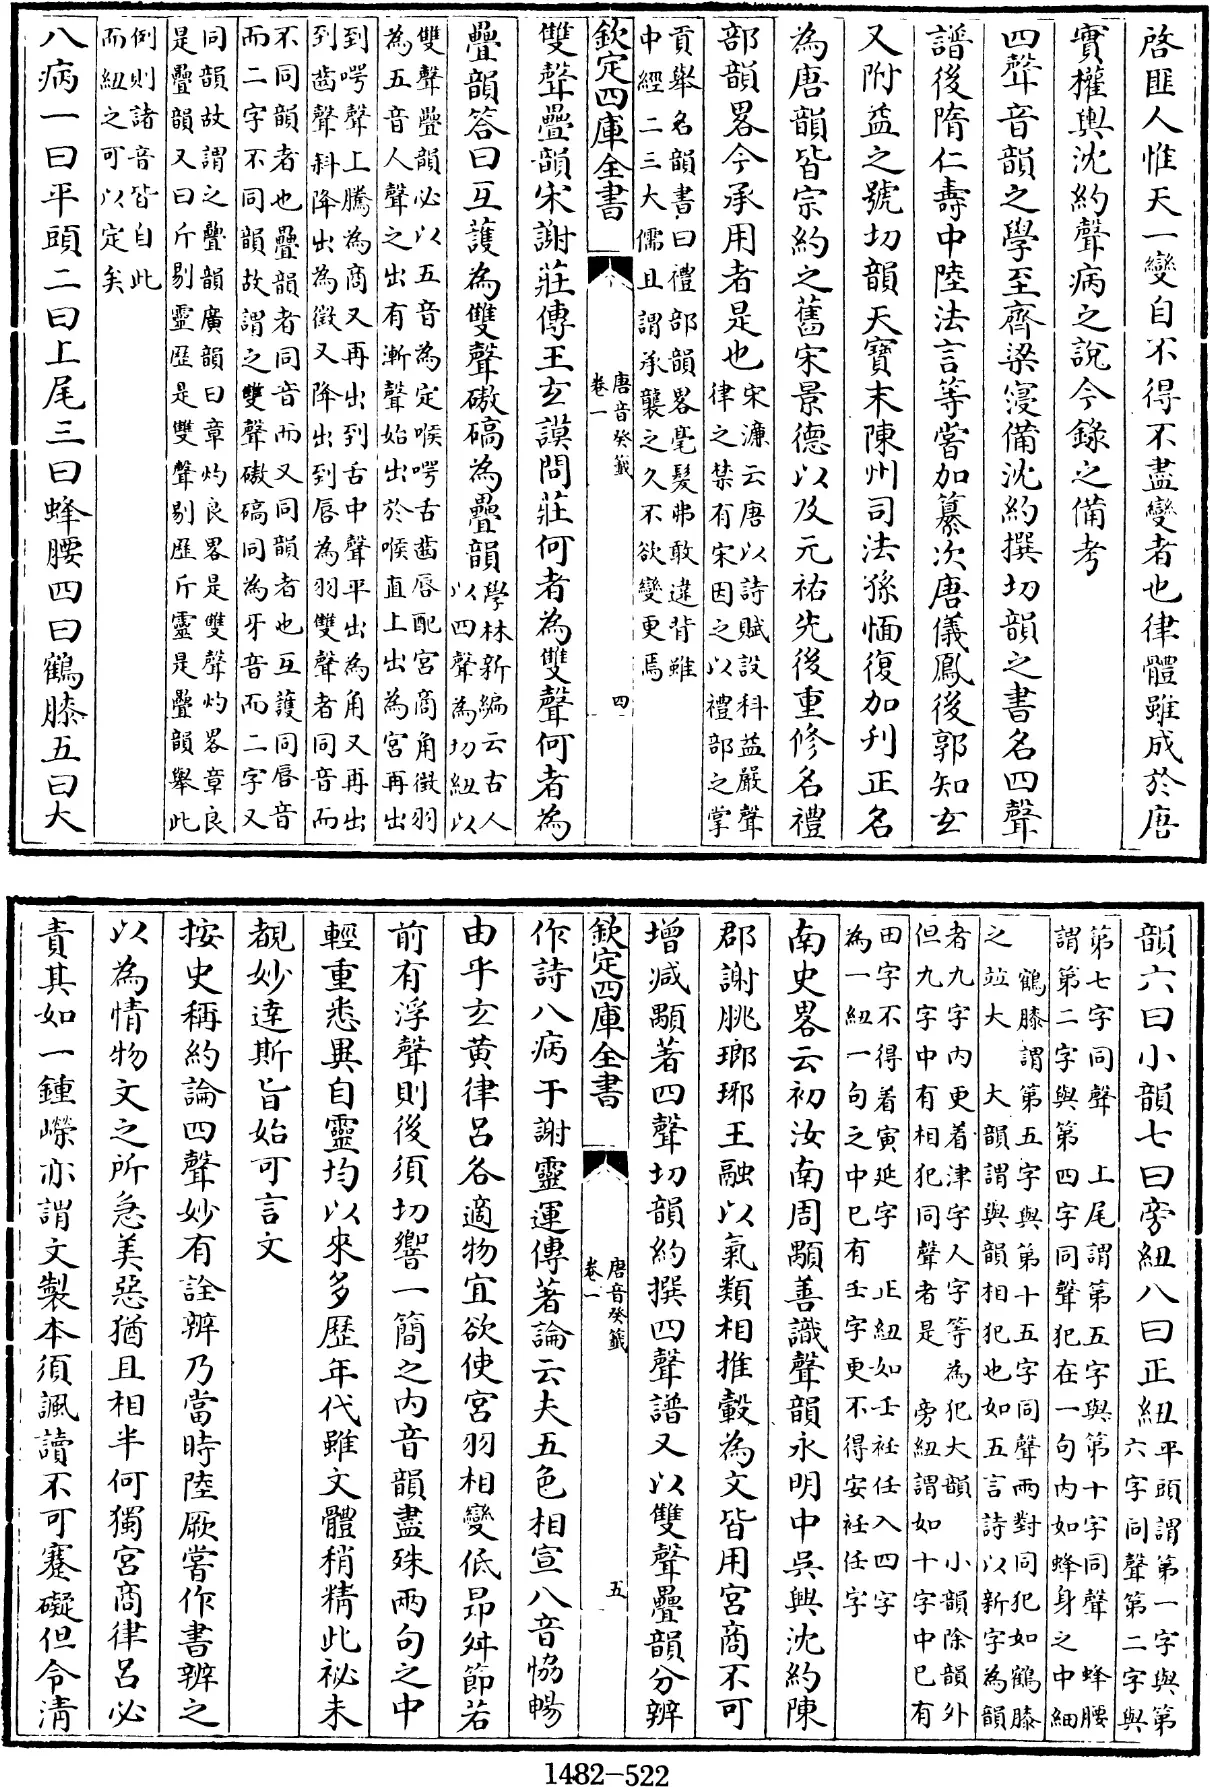 啓匪人惟天一變自不得不盡變者也律體雖成於唐
實權輿沈約聲病之說今錄之備考
四聲音韻之學至齊梁寖備沈約撰切韻之書名四聲
譜後隋仁壽中陸法言等嘗加纂次唐儀鳳後郭知玄
又附益之號切韻天寶末陳州司法孫愐復加刋正名
為唐韻皆宗約之舊宋景德以及元祐先後重修名禮
部韻畧今承用者是也宋濂云唐以詩賦設科益嚴聲
律之禁有宋因之以禮部之掌
貢舉名韻書曰禮部韻畧毫髮弗敢違背雖
中經二三大儒且謂承襲之久不欲變更焉
欽定四庫全書
唐音癸籤
卷一
四
雙聲疊韻宋謝莊傳王玄謨問莊何者為雙聲何者為
疊韻答曰互護為雙聲磝碻為疊韻學林新編云古人
以四聲為切紐以
雙聲疊韻必以五音為定喉咢舌齒唇配宮商角徵羽
為五音人聲之出有漸聲始出於喉直上出為宮再出
到咢聲上騰為商又再出到舌中聲平出為角又再出
到齒聲斜降出為徵又降出到唇為羽雙聲者同音而
不同韻者也疊韻者同音而又同韻者也互護同唇音
而二字不同韻故謂之雙聲磝碻同為牙音而二字又
同韻故謂之疊韻廣韻曰章灼良畧是雙聲灼畧章良
是疊韻又曰斤剔靈歴是雙聲剔歴斤靈是疊韻舉此
例則諸音皆自此
而紐之可以定矣
八病一曰平頭二曰上尾三曰蜂腰四曰鶴膝五曰大
韻六曰小韻七曰旁紐八曰正紐平頭謂第一字與第
六字同聲第二字與
第七字同聲 上尾謂第五字與第十字同聲 蜂腰
謂第二字與第四字同聲犯在一句内如蜂身之中細
鶴膝謂第五字與第十五字同聲兩對同犯如鶴膝
之竝大 大韻謂與韻相犯也如五言詩以新字為韻
者九字内更着津字人字等為犯大韻 小韻除韻外
但九字中有相犯同聲者是 旁紐謂如十字中已有
田字不得着寅延字 正紐如壬衽任入四字
為一紐一句之中已有壬字更不得安衽任字
南史畧云初汝南周顒善識聲韻永明中吳興沈約陳
郡謝朓瑯琊王融以氣類相推轂為文皆用宮商不可
增減顒著四聲切韻約撰四聲譜又以雙聲疊韻分辨
欽定四庫全書
唐音癸籤
卷一
五
作詩八病于謝靈運傳著論云夫五色相宣八音恊暢
由乎玄黄律呂各適物宜欲使宮羽相變低昂舛節若
前有浮聲則後須切響一簡之内音韻盡殊兩句之中
輕重悉異自靈均以來多歴年代雖文體稍精此祕未
覩妙達斯旨始可言文
按史稱約論四聲妙有詮辨乃當時陸厥嘗作書辨之
以為情物文之所急美惡猶且相半何獨宮商律呂必
責其如一鍾嶸亦謂文製本須諷讀不可蹇礙但令清
1482-522